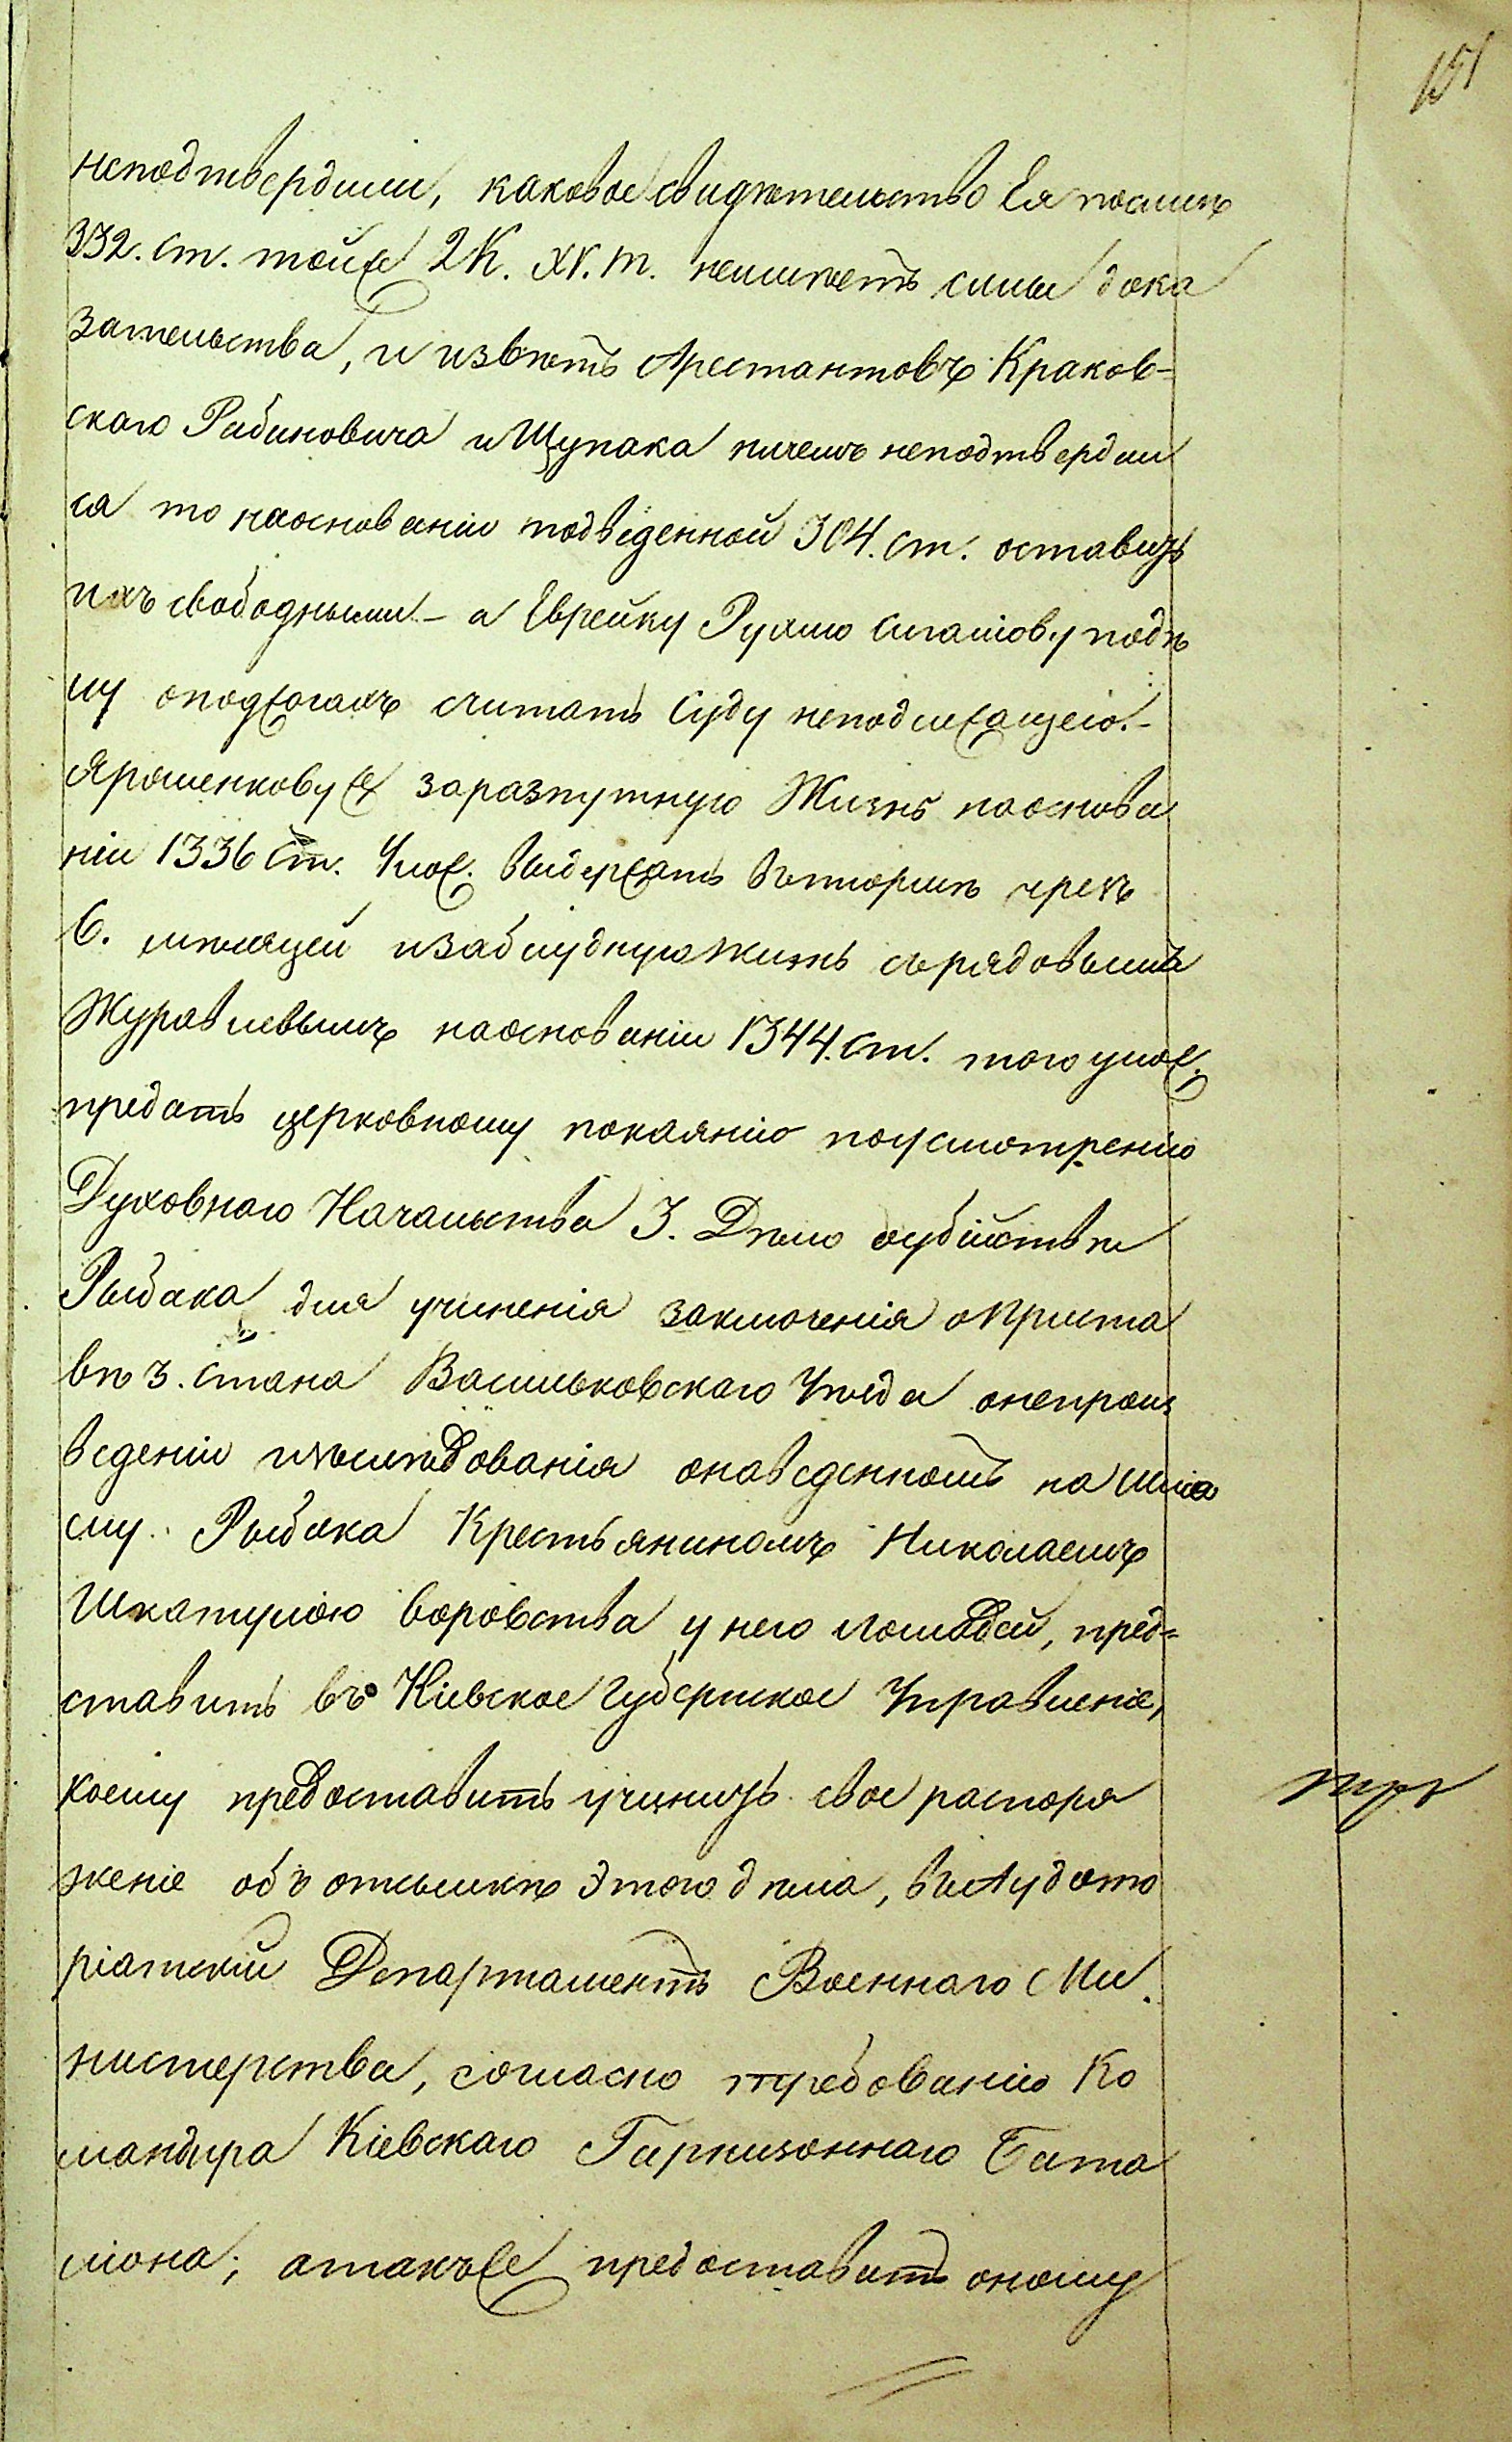 151
неподтвердили, каковое свидѣтельство Ея посилѣ
332. ст. тойже 2 К. XV. т. неимѣетъ силы дока
зательства, и извѣтъ Арестантовъ Краков-
скаго Рабиновича и Щупака ничемъ неподтвердил
ся то наоснованіи подведенной 304. ст. оставить
ихъ свободными – а Еврейку Рухлю подѣ
лу оподжогахъ считать Суду неподлежащею.-
Ярошенковуже заразпутную Жизнь наоснова
ніи 1336 ст. Улож. выдержать втюрмѣ чрезъ
6. мѣсяцей изаблудную жизнь срядовымъ
Журавлевымъ наоснованіи 1344. ст. того улож.
предать церковному покаянію поусмотренію
Духовнаго Начальства 3. Дѣло оубійствѣ
Рыбака для учиненія заключенія оПриста
вѣ 3. стана Васильковскаго Уѣзда онепроиз
веденіи изслѣдованія онаведенномъ на
му Рыбака Крестьяниномъ Николаемъ
Шкатулою воровства у него лошадей, пред=
ставить въ Кіевское Губернское Управленіе,
коему предоставить учинить свое распоря
женіе объ отсылкѣ этого дѣла, въ Аудито
ріатскій Департаментъ Военнаго Ми
нистерства, согласно требованію Ко
мандира Кіевскаго Гарнизоннаго Бата
ліона; атакъже предоставить оному